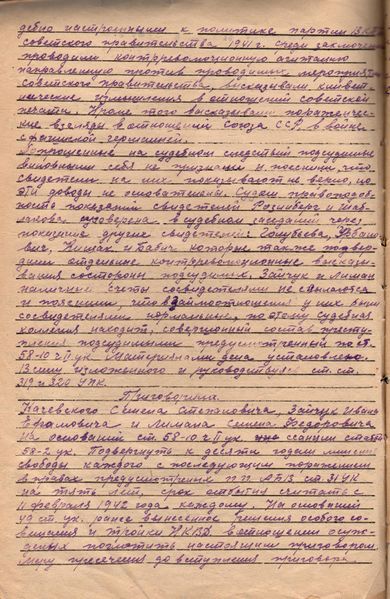 дебно настроенными к политике партии ВКП
советского правительства в 1941 г. среди заключен
проводили контрреволюционную агитацию
направленную против проводимых мероприятий
советского правительства, высказывали клевет-
нические измышления в отношений советской
печати. Кроме того высказывали пораженчес-
кие взгляды в отношений Союза ССР, в войне
с фашисткой германией.
Допрошенные на судебном следствий подсудимые
виновными себя не признали и пояснили, что
свидетели на них показывают не верно, но
эти доводы не основательны. Судом правдоподоб-
ность показаний свидетелей Розенберг и
проверена в судебном заседаний через
показание другие свидетелей Голубьева,
Кишмак и Бабич которые также подтвер-
дили отдельные контрреволюционные высказы-
вания со стороны подсудимых. Зайчук и Лиман
на личные счеты со свидетелями не ссылаются
и пояснили, что взаимоотношения у них были
со свидетелями нормальные, поэтому судебная
коллегия находит, совершенный состав престу-
пления подсудимыми предусмотренный по ст.
58-10 ч II ук материалами дела установлено.
В силу изложенного и руководствуясь ст. ст.
319 и 320 УПК
Приговорила
Качевского Семена Степановича, Зайчук Ивана
Ефимовича и Лимана Семена Федоровича
На оснований ст. 58-10 ч II ук с санкц ст
58-2 ук. Подвергнуть к десяти годам лишения
свободы каждого с последующим поражением
в правах предусмотренных п.п. ст 31 УК
на пять лет, срок отбытия считать с
11 февраля 1942 года каждому. На оснований
49 ст. ук. ранее вынесенное решения особого со-
вещания и тройки НКВД в отношении осуж-
денных поглотить настоящим приговором.
Меру пресечения до вступления приговора